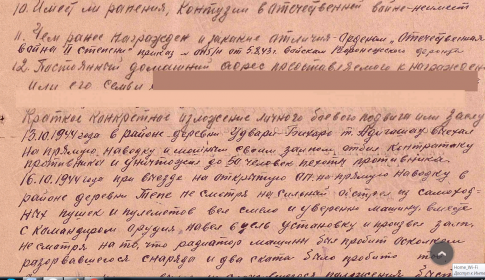 10. Имеет ли ранения, контузии в отечественной войне - неимеет
11. Чем ранее награжден и закакие отличия - Орденом, Отечественная
война II степени" приказ от 5.8.43г. войскам Воронежского фронта
12. Постоянный домашний адрес
или его семьи
Краткое конкретное изложение личного боевого подвига или заслуг
13.10.1944 года в районе деревни Удвари выехал
на прямую наводку и мощным своим залпом, отбил контратаку
противника и уничтожил до 50 человек пехоты противника.
16.10.1944 года при выезде на открытую ОП-на прямую наводку в
районе деревни Тепе не смотря на сильный обстрел из самоход-
ных пушек и пулеметов вел смело и уверенно машину, вместе
с командиром орудия, навел в цель установку и произвел залп.
не смотря на то, что радиатор машины был пробит осколком
разорвавшегося снаряда и два ската было пробито
положения
Home_Wi-Fi